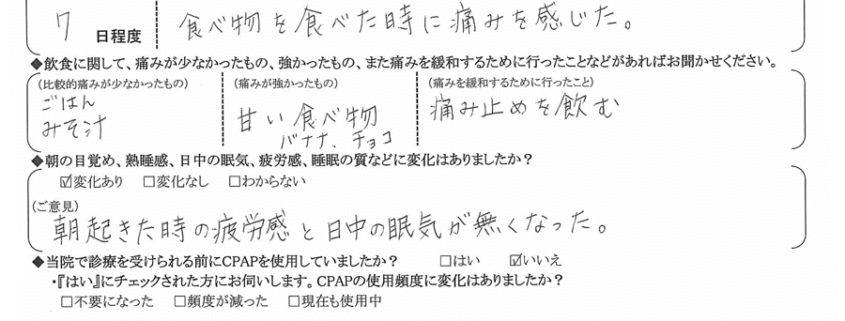 7 日程度 食べ物を食べた時に痛みを感じた。
◆飲食に関して、痛みが少なかったもの、強かったもの、また痛みを緩和するために行ったことなどがあればお聞かせください。
(比較的痛みが少なかったもの) (痛みが強かったもの) (痛みを緩和するために行ったこと)
ごはん
みそ汁 甘い食べ物 痛み止めを飲む
バナナ、チョコ
◆朝の目覚め、熟睡感、日中の眠気、疲労感、睡眠の質などに変化はありましたか？
☑変化あり □変化なし □わからない
(ご意見)
朝起きた時の疲労感と日中の眠気が無くなった。
◆当院で診療を受けられる前にCPAPを使用していましたか？ □はい ☑いいえ
・『はい』にチェックされた方にお伺いします。CPAPの使用頻度に変化はありましたか？
□不要になった □頻度が減った □現在も使用中